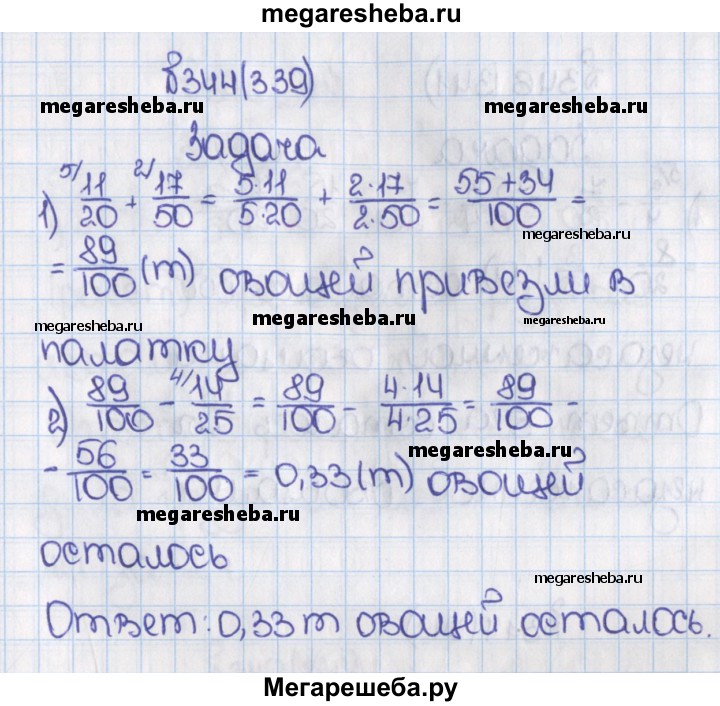 megaresheba.ru
№344(339)
megaresheba.ru megaresheba.ru
Задача
1) 5/ 11/20 + 2/ 17/50 = 5·11/5·20 + 2·17/2·50 = 55+34/100 =
megaresheba.ru
= 89/100 (т) овощей привезли в
megaresheba.ru megaresheba.ru megaresheba.ru
палатку
2) 89/100 - 4/ 14/25 = 89/100 - 4·14/4·25 = 89/100 -
megaresheba.ru
- 56/100 = 33/100 = 0,33 (т) овощей
megaresheba.ru
осталось
megaresheba.ru
Ответ: 0,33 т овощей осталось.
Мегарешеба.ру